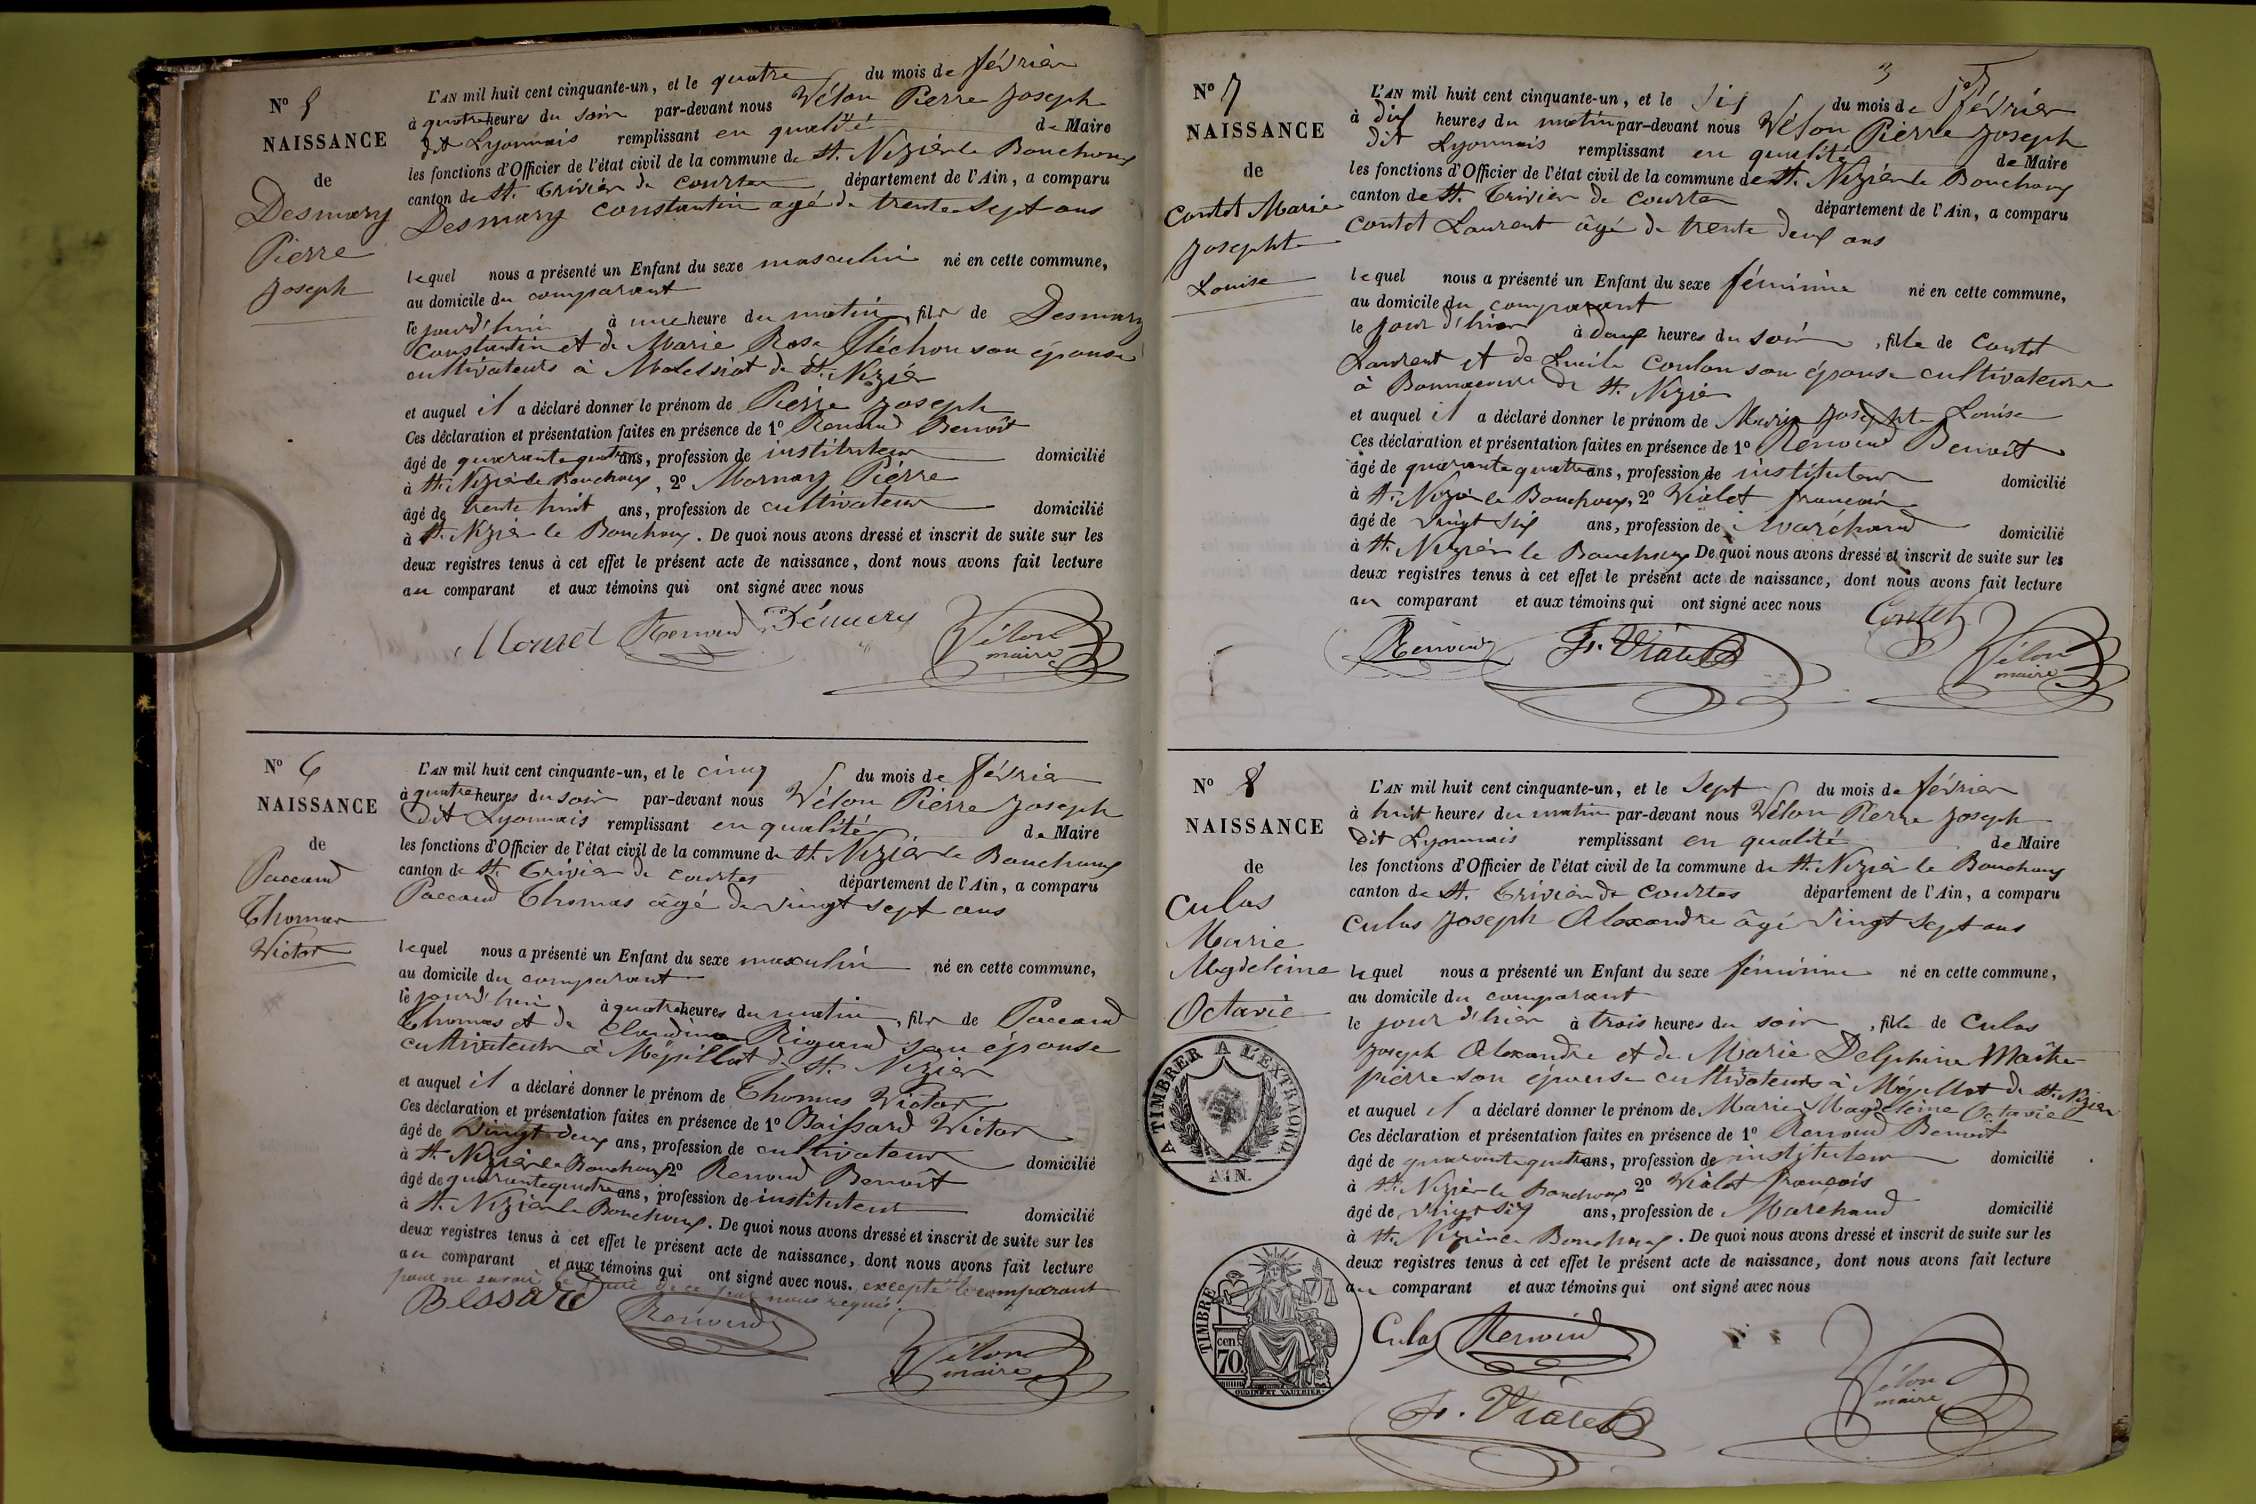 N° 5
NAISSANCE
de
Desmary
Pierre
Joseph
L'AN mil huit cent cinquante-un, et le quatre du mois de février
à quatre heures du soir par-devant nous Vélon Pierre Joseph
dit Lyonnais remplissant en qualité de Maire
les fonctions d'Officier de l'état civil de la commune de St. Nizier le Bouchoux
canton de St. Trivier de Courtes département de l'Ain, a comparu
Desmary constantin agé de trente sept ans
lequel nous a présenté un Enfant du sexe masculin né en cette commune,
au domicile du comparant
le jourd'hui à une heure du matin, fils de Desmary
Constantin et de Marie Rose Fléchon son épouse
cultivateurs à Malessiat de St. Nizier
et auquel il a déclaré donner le prénom de Pierre Joseph
Ces déclaration et présentation faites en présence de 1° Renoud Benoit
âgé de quarante quatre ans, profession de instituteur domicilié
à St. Nizier le Bouchoux, 2° Mornay Pierre
âgé de trente huit ans, profession de cultivateur domicilié
à St. Nizier le Bouchoux. De quoi nous avons dressé et inscrit de suite sur les
deux registres tenus à cet effet le présent acte de naissance, dont nous avons fait lecture
au comparant et aux témoins qui ont signé avec nous
Renoud
Vélon
maire
N° 6
NAISSANCE
de
Paccaud
Thomas
Victor
L'AN mil huit cent cinquante-un, et le cinq du mois de février
à quatre heures du soir par-devant nous Vélon Pierre Joseph
dit Lyonnais remplissant en qualité de Maire
les fonctions d'Officier de l'état civil de la commune de St. Nizier le Bouchoux
canton de St. Trivier de Courtes département de l'Ain, a comparu
Paccaud Thomas âgé de vingt sept ans
lequel nous a présenté un Enfant du sexe masculin né en cette commune,
au domicile du comparant
le jourd'hui à quatre heures du matin, fils de Paccaud
Thomas et de Claudine Rigaud son épouse
cultivateurs à Mépillat de St. Nizier
et auquel il a déclaré donner le prénom de Thomas Victor
Ces déclaration et présentation faites en présence de 1° Baissard Victor
âgé de vingt deux ans, profession de cultivateur domicilié
à St. Nizier le Bouchoux 2° Renoud Benoît
âgé de quarante quatre ans, profession de instituteur domicilié
à St. Nizier le Bouchoux. De quoi nous avons dressé et inscrit de suite sur les
deux registres tenus à cet effet le présent acte de naissance, dont nous avons fait lecture
au comparant et aux témoins qui ont signé avec nous. excepté le comparant
pour ne savoir le faire de ce par nous requis.
Bessard
Renoud
Vélon
maire
3
N° 7
NAISSANCE
de
Contet Marie
Josephte
Louise
L'AN mil huit cent cinquante-un, et le six du mois de février
à dix heures du matin par-devant nous Vélon Pierre Joseph
dit Lyonnais remplissant en qualité de Maire
les fonctions d'Officier de l'état civil de la commune de St. Nizier le Bouchoux
canton de St. Trivier de Courtes département de l'Ain, a comparu
Contet Laurent âgé de trente deux ans
lequel nous a présenté un Enfant du sexe féminine né en cette commune,
au domicile du comparant
le jour d'hier à deux heures du soir, fille de Contet
Laurent et de Lucile Coulon son épouse cultivateurs
à de St. Nizier
et auquel il a déclaré donner le prénom de Marie Josephte Louise
Ces déclaration et présentation faites en présence de 1° Renoud Benoît
âgé de quarante quatre ans, profession de instituteur domicilié
à St. Nizier le Bouchoux, 2° Vialet françois
âgé de vingt six ans, profession de marchand domicilié
à St. Nizier le Bouchoux De quoi nous avons dressé et inscrit de suite sur les
deux registres tenus à cet effet le présent acte de naissance, dont nous avons fait lecture
au comparant et aux témoins qui ont signé avec nous
Contet
Renoud
F. Vialet
Vélon
maire
N° 8
NAISSANCE
de
Culas
Marie
Magdeleine
Octavie
L'AN mil huit cent cinquante-un, et le sept du mois de février
à huit heures du matin par-devant nous Vélon Pierre Joseph
dit Lyonnais remplissant en qualité de Maire
les fonctions d'Officier de l'état civil de la commune de St. Nizier le Bouchoux
canton de St. Trivier de Courtes département de l'Ain, a comparu
Culas Joseph Alexandre âgé vingt sept ans
lequel nous a présenté un Enfant du sexe féminine né en cette commune,
au domicile du comparant
le jour d'hier à trois heures du soir, fille de Culas
Joseph Alexandre et de Marie Delphine Maitre
pierre son épouse cultivateurs à Mépillat de St. Nizier
et auquel il a déclaré donner le prénom de Marie Magdeleine Octavie
Ces déclaration et présentation faites en présence de 1° Renoud Benoît
âgé de quarante quatre ans, profession de instituteur domicilié
à St. Nizier le Bouchoux 2° Vialet françois
âgé de vingt six ans, profession de Marchand domicilié
à St. Nizier le Bouchoux. De quoi nous avons dressé et inscrit de suite sur les
deux registres tenus à cet effet le présent acte de naissance, dont nous avons fait lecture
au comparant et aux témoins qui ont signé avec nous
A TIMBRER A L'EXTRAORD.
AIN.
TIMBRE
cen
70
Culas
Renoud
F. Vialet
Vélon
maire